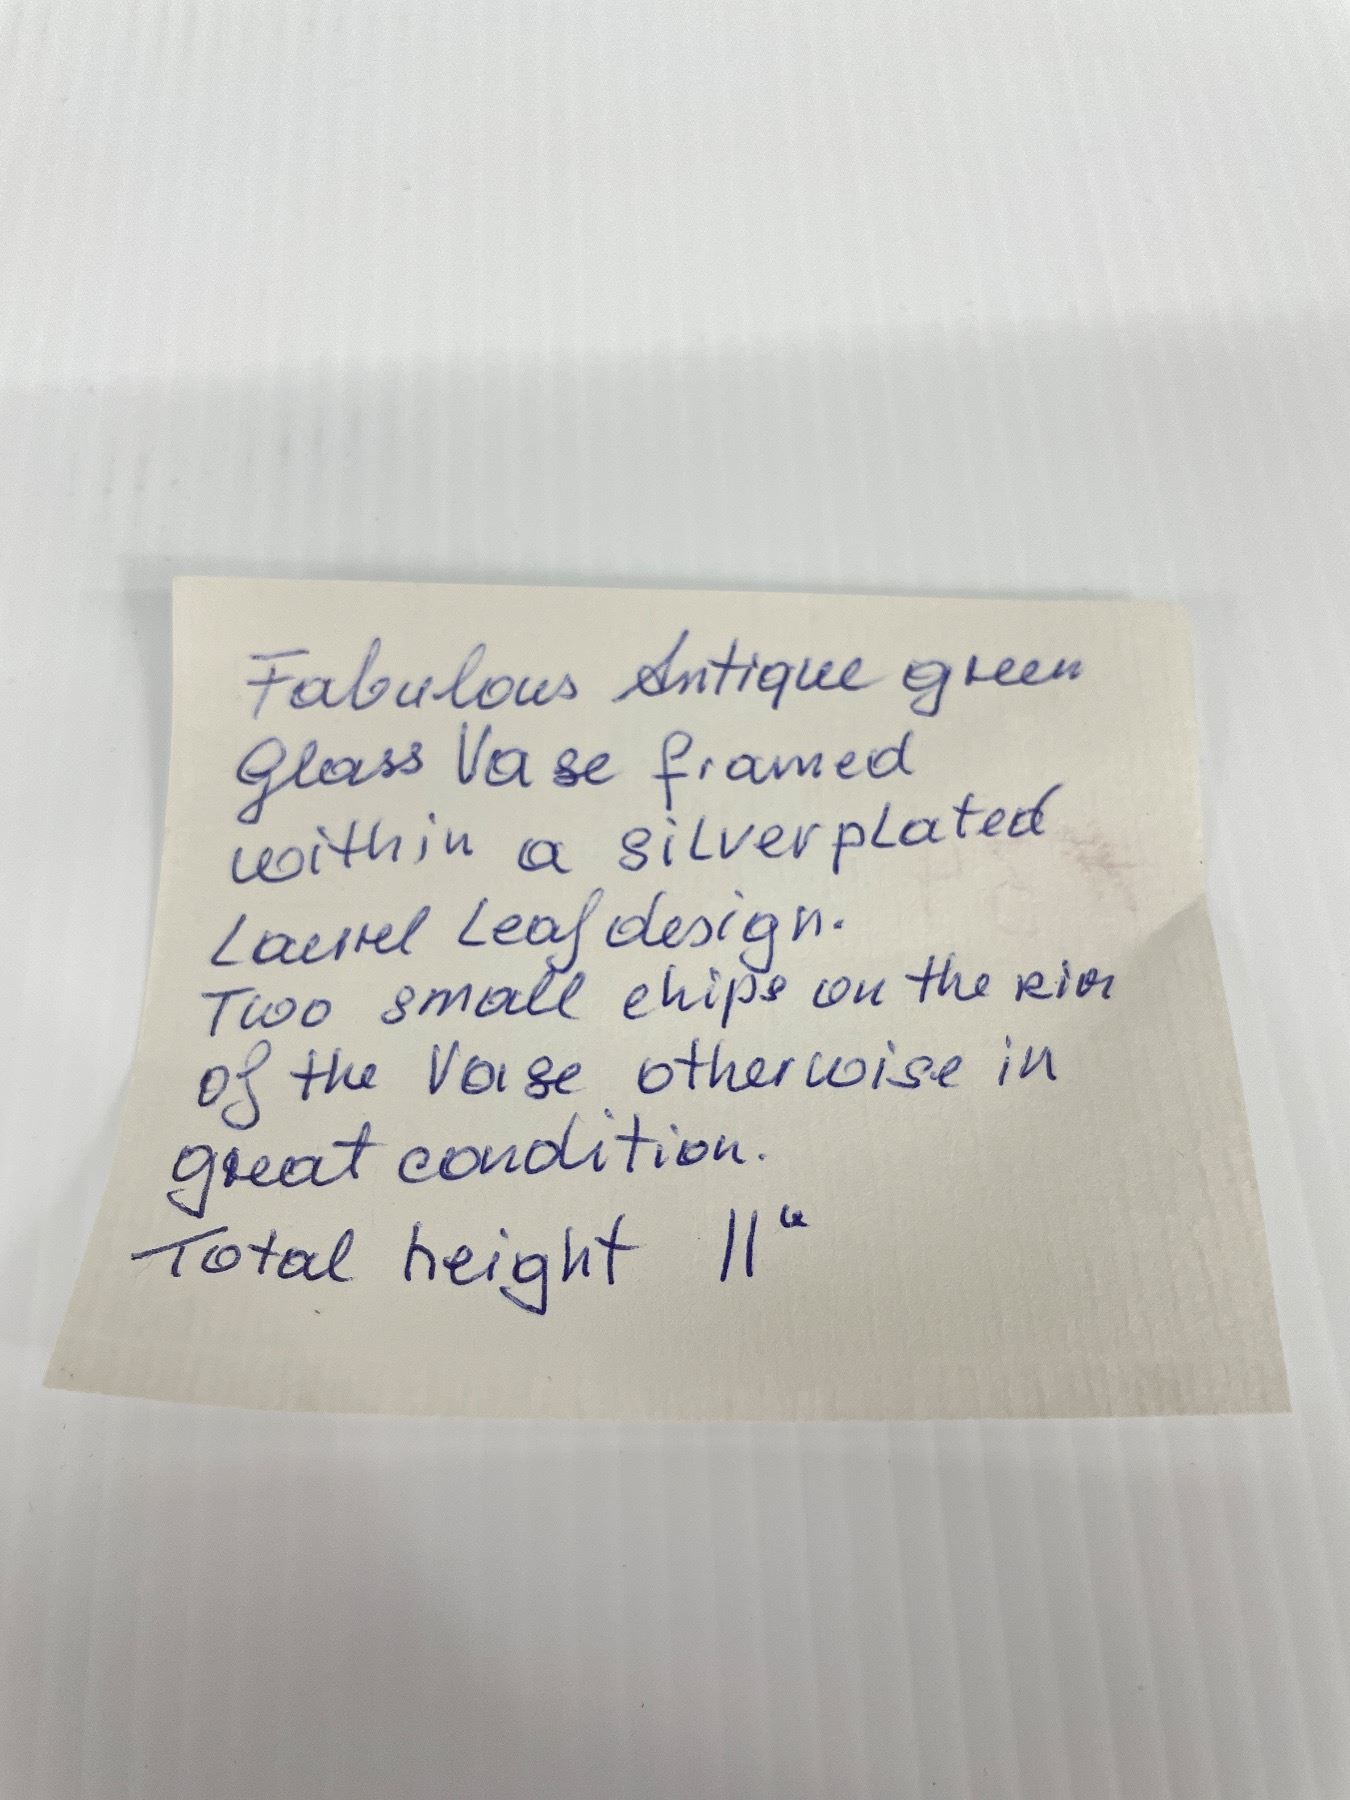 Fabulous Antique green
Glass Vase framed
within a silverplated
Laurel Leaf design.
Two small chips on the rim
of the Vase otherwise in
great condition.
Total height 11"